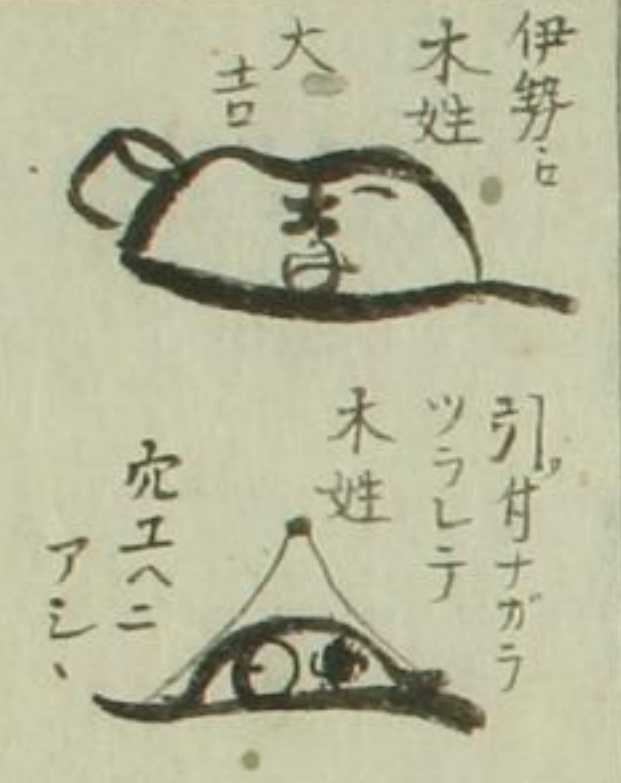 伊勢ニ
木姓
大
吉
引付ナガラ
ツラレテ
木姓
穴エヘニ
アシヽ